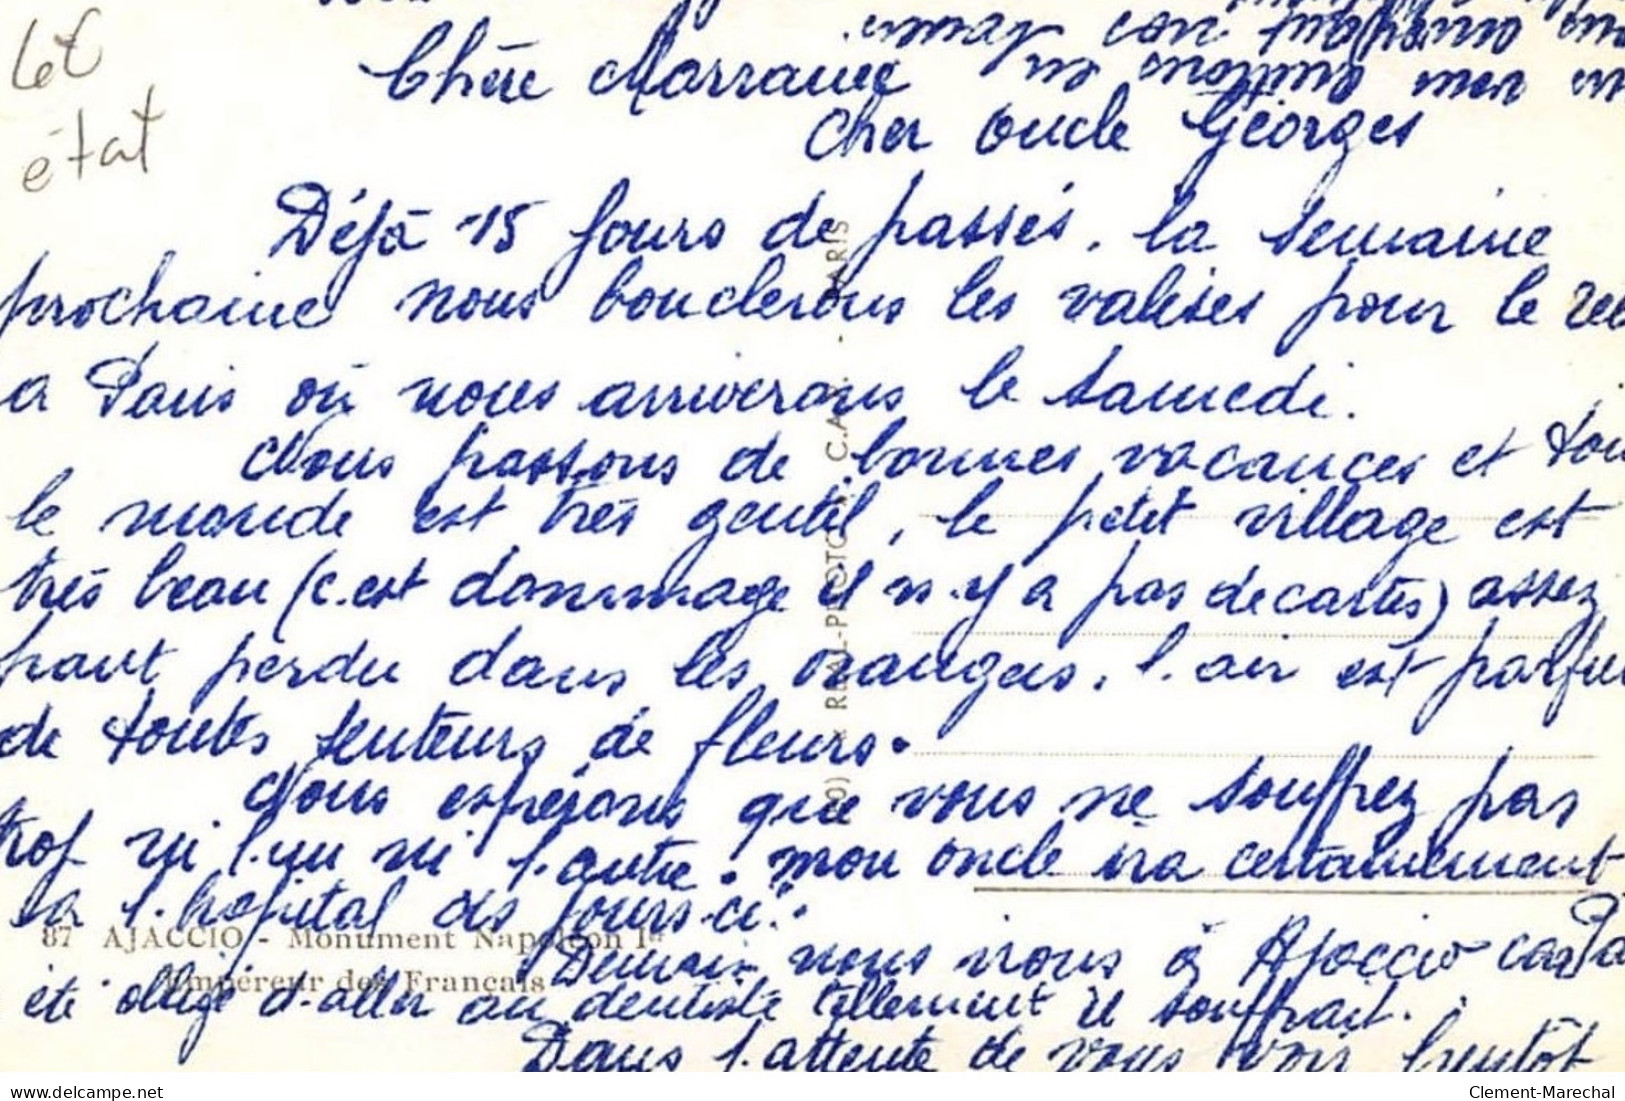 Chère Marraine
Cher oncle Géorges
Déjà 15 jours de passés. la semaine
prochaine nous bouclerons les valises pour le
a Paris où nous arriverons le samedi.
Nous passons de bonnes vacances et tou
le monde est très gentil, le petit village est
très beau (c.est dommage il n.y a pas de cartes) assez
haut perdu dans les orangers. l.air est parfu
de toutes senteurs de fleurs.
Nous espérons que vous ne souffrez pas
trop ni l.un ni l.autre. mon oncle ira certainement
a l.hopital ces jours-ci.
87 AJACCIO - Monument Napoléon Ier
Empereur des Français
Demain nous irons à Ajaccio car
été obligé d.aller au dentiste tellement il souffrait.
Dans l.attente de vous voir bientôt
REAL-PHOTO C.A.P. - PARIS
état
delcampe.net
Clement-Marechal